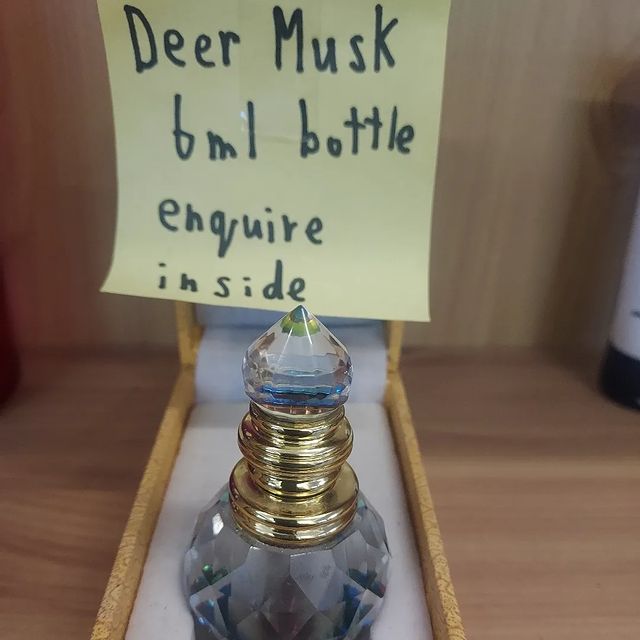 Deer Musk
6ml bottle
enquire
inside